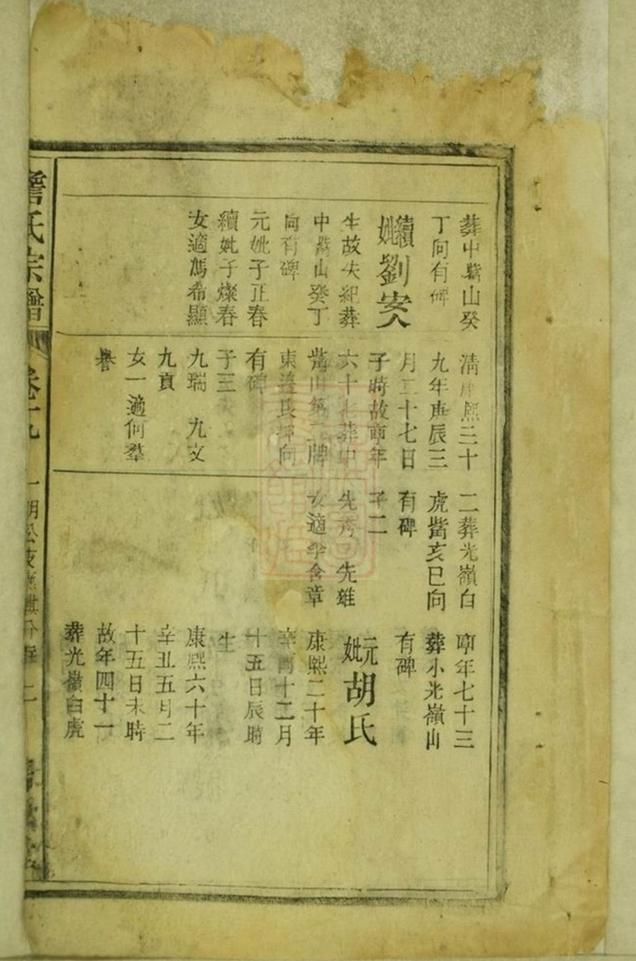 葬中觜山癸
丁向有碑
續妣劉安人
生故失紀葬
中觜山癸丁
向有碑
元妣子正春
續妣子燦春
女適馮希顯
清康熙三十
九年庚辰三
月二十七日
子時故享年
六十七葬中
觜山第二牌
東邊艮坤向
有碑
子三
九瑞 九文
九貢
女一適何羣
譽
二葬光嶺白
虎觜亥巳向
有碑
子二
先秀 先雄
女適李含章
享年七十三
葬小光嶺山
有碑
元妣胡氏
康熙二十年
辛酉十二月
十五日辰時
生
康熙六十年
辛丑五月二
十五日未時
故年四十一
葬光嶺白虎
詹氏宗譜
卷十九
二